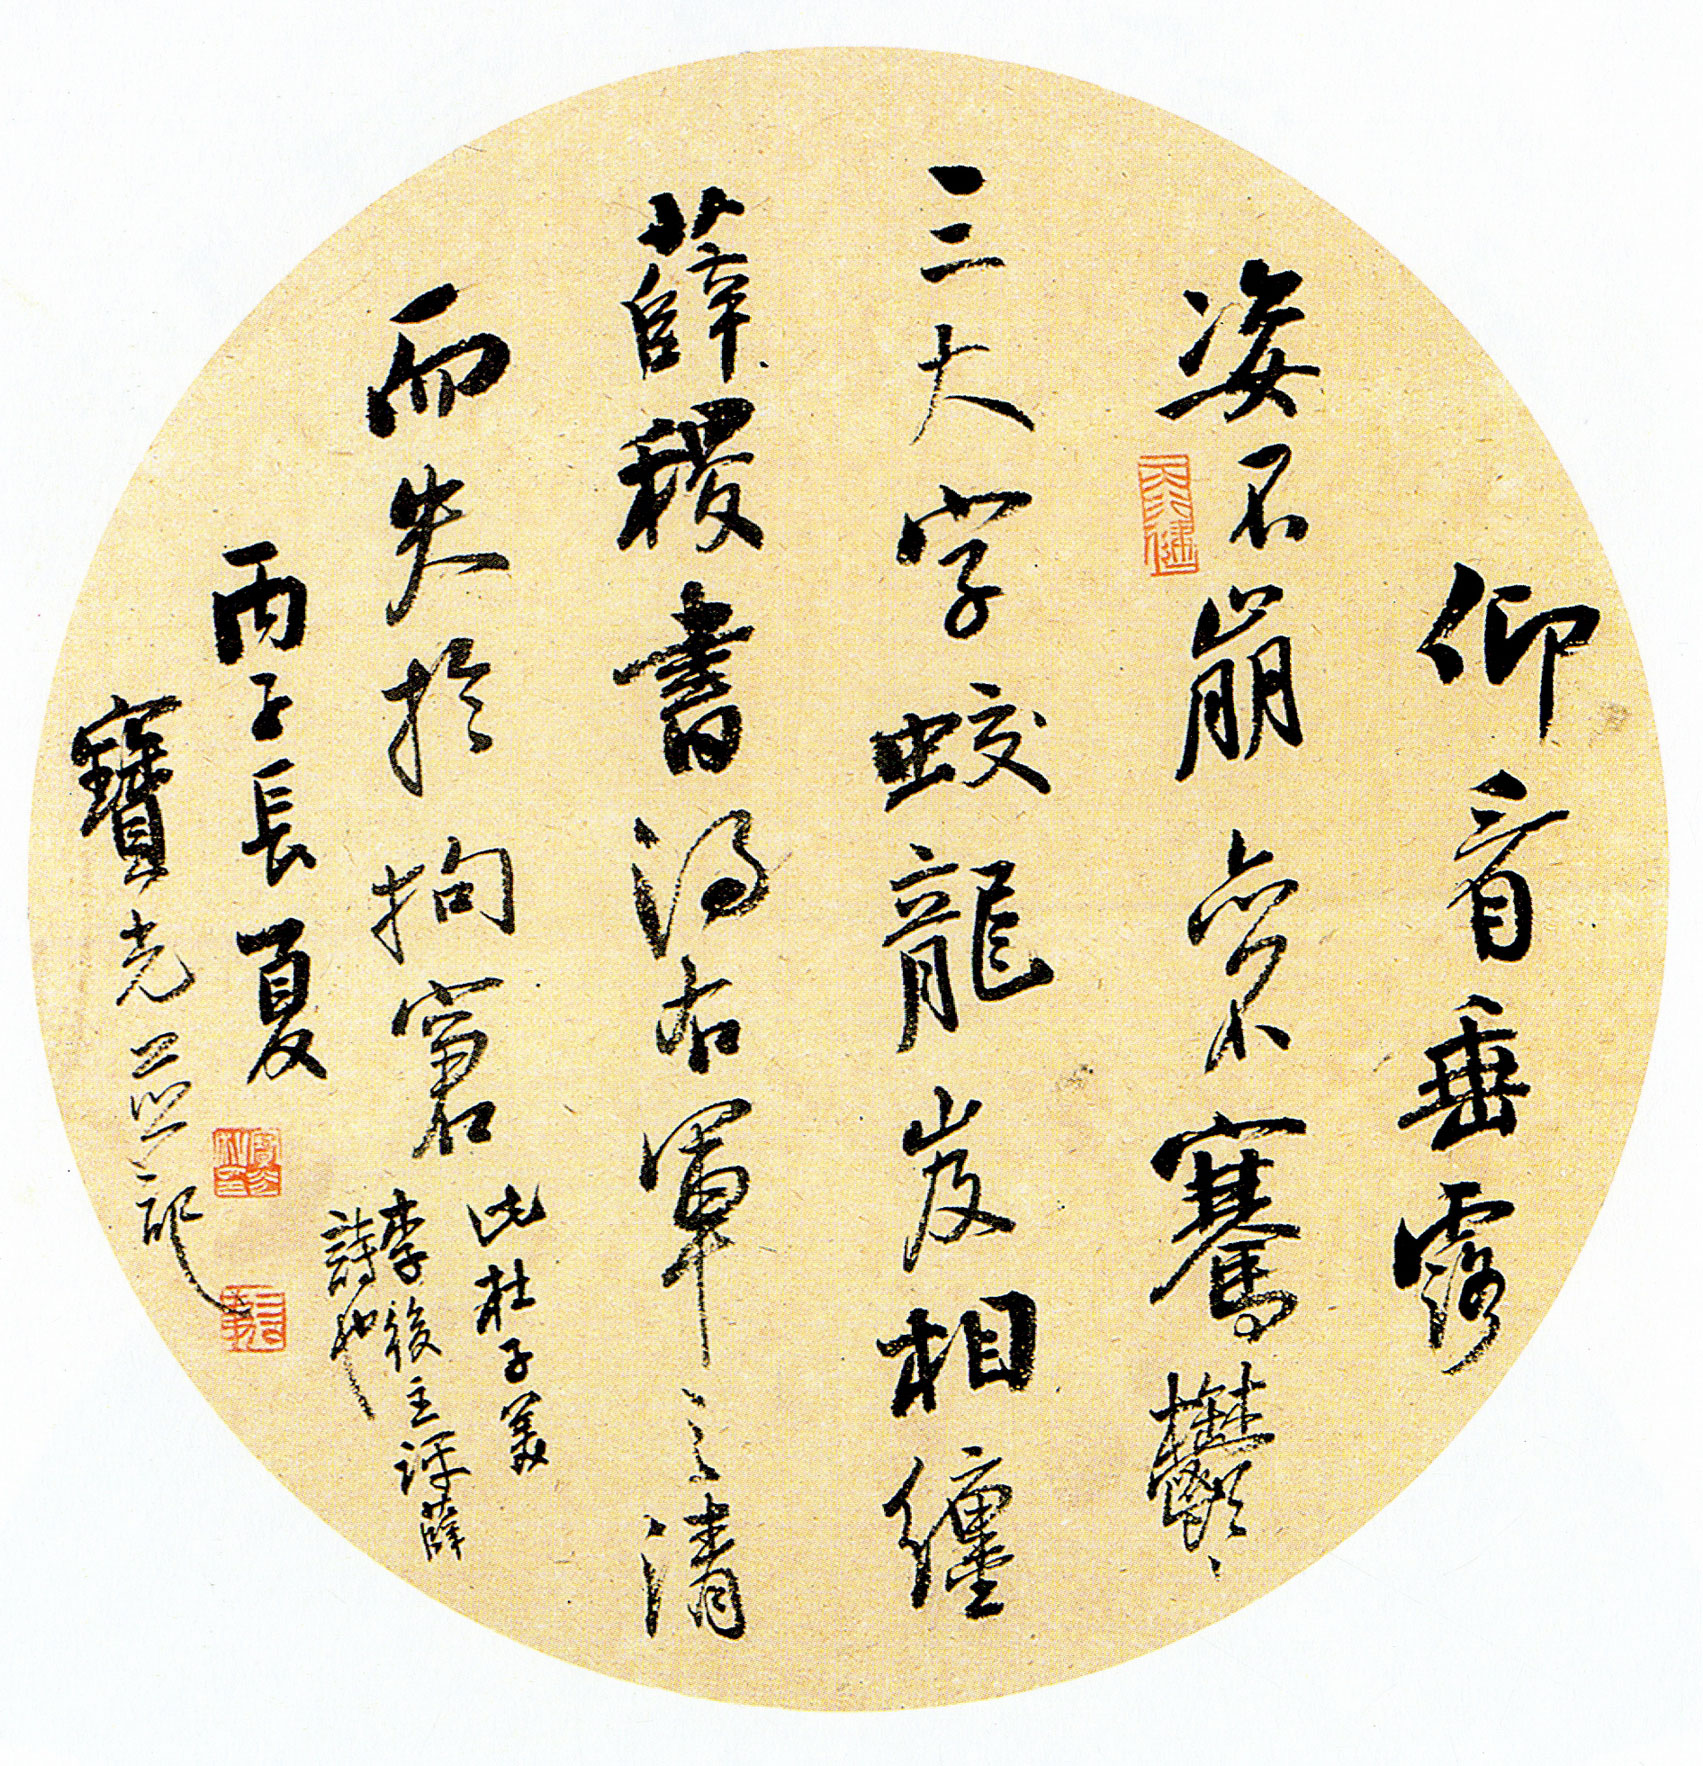 仰看垂露
姿不崩亦不騫鬱〻
三大字蛟龍岌相纏
薛稷書得右軍之清
而失於拘窘
此杜子美
李後主評薛
詩也
丙子長夏
寶光並記
天行健